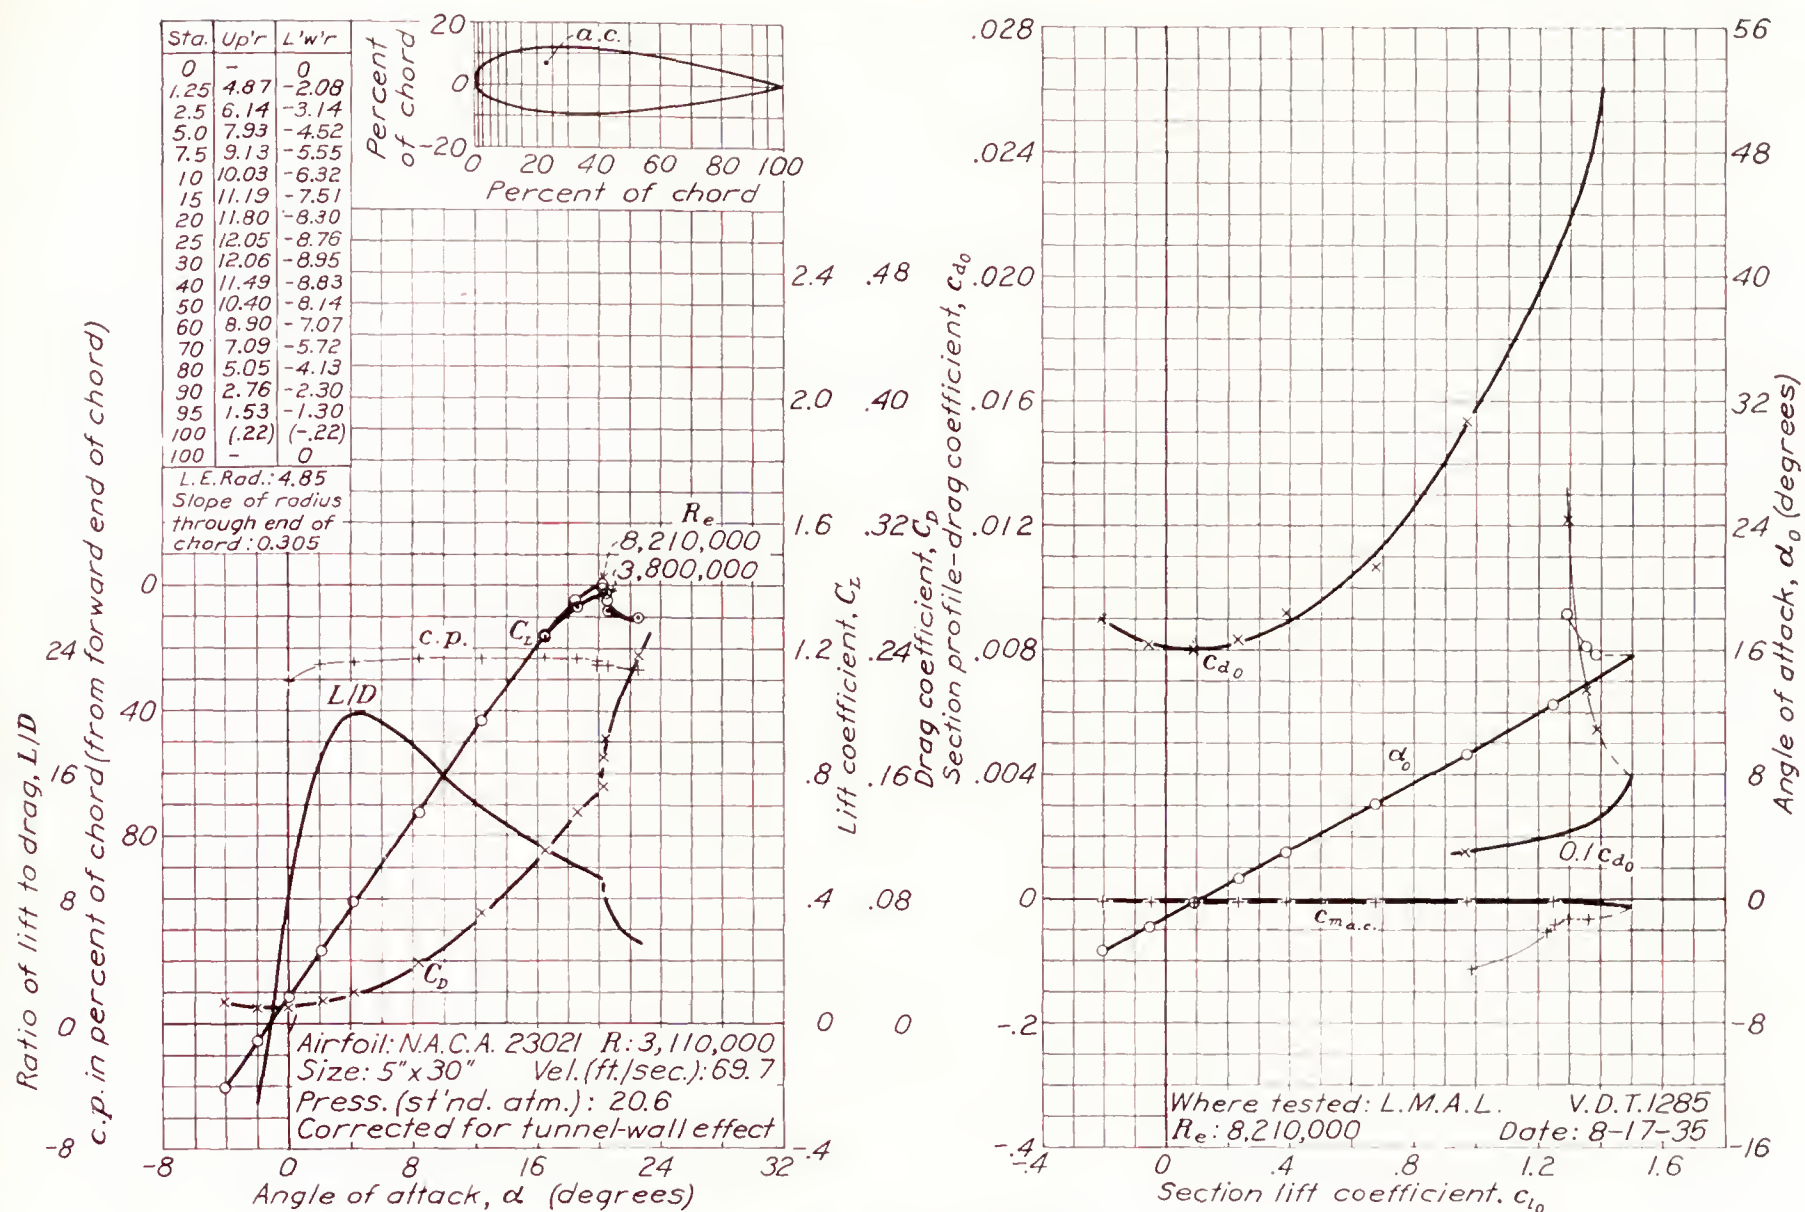 Sta. Up'r L'w'r
0 - 0
1.25 4.87 -2.08
2.5 6.14 -3.14
5.0 7.93 -4.52
7.5 9.13 -5.55
10 10.03 -6.32
15 11.19 -7.51
20 11.80 -8.30
25 12.05 -8.76
30 12.06 -8.95
40 11.49 -8.83
50 10.40 -8.14
60 8.90 -7.07
70 7.09 -5.72
80 5.05 -4.13
90 2.76 -2.30
95 1.53 -1.30
100 (.22) (-.22)
100 - 0
L.E. Rad.: 4.85
Slope of radius
through end of
chord: 0.305
Percent
of chord
20
0
-20
a.c.
0 20 40 60 80 100
Percent of chord
Ratio of lift to drag, L/D
24
16
8
0
-8
c.p. in percent of chord (from forward end of chord)
0
40
80
Re
8,210,000
3,800,000
c.p.
CL
L/D
CD
2.4
2.0
1.6
1.2
.8
.4
0
-.4
Lift coefficient, CL
.48
.40
.32
.24
.16
.08
0
Drag coefficient, CD
Airfoil: N.A.C.A. 23021 R: 3,110,000
Size: 5"x30" Vel. (ft./sec.): 69.7
Press. (st'nd. atm.): 20.6
Corrected for tunnel-wall effect
-8 0 8 16 24 32
Angle of attack, α (degrees)
Section profile-drag coefficient, cd₀
.028
.024
.020
.016
.012
.008
.004
0
-.2
-.4
cd₀
α₀
0.1 cd₀
cm a.c.
56
48
40
32
24
16
8
0
-8
-16
Angle of attack, α₀ (degrees)
Where tested: L.M.A.L. V.D.T. 1285
Re: 8,210,000 Date: 8-17-35
-.4 0 .4 .8 1.2 1.6
Section lift coefficient. cl₀